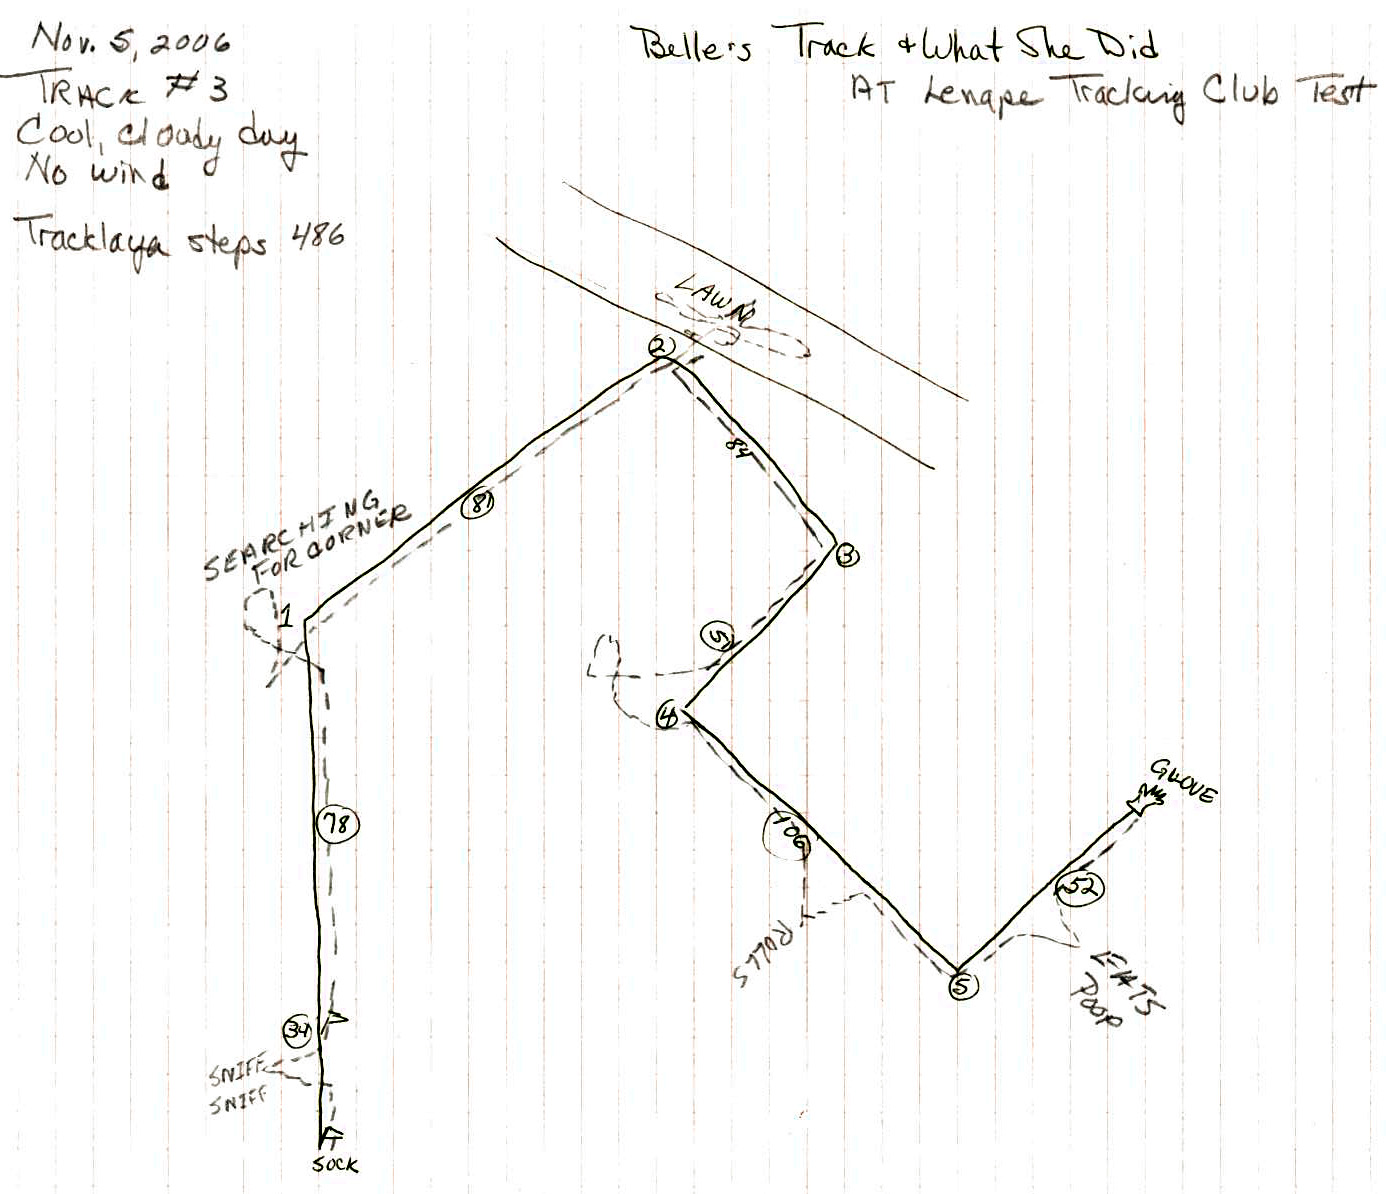 Nov. 5, 2006
TRACK #3
Cool, cloudy day
No wind
Tracklaya steps 486
Belle's Track & What She Did
AT Lenape Tracking Club Test
LAWN
2
84
81
SEARCHING
FOR CORNER
1
3
51
4
GLOVE
78
106
52
ROLLS
5
EATS
POOP
34
SNIFF
SNIFF
SOCK